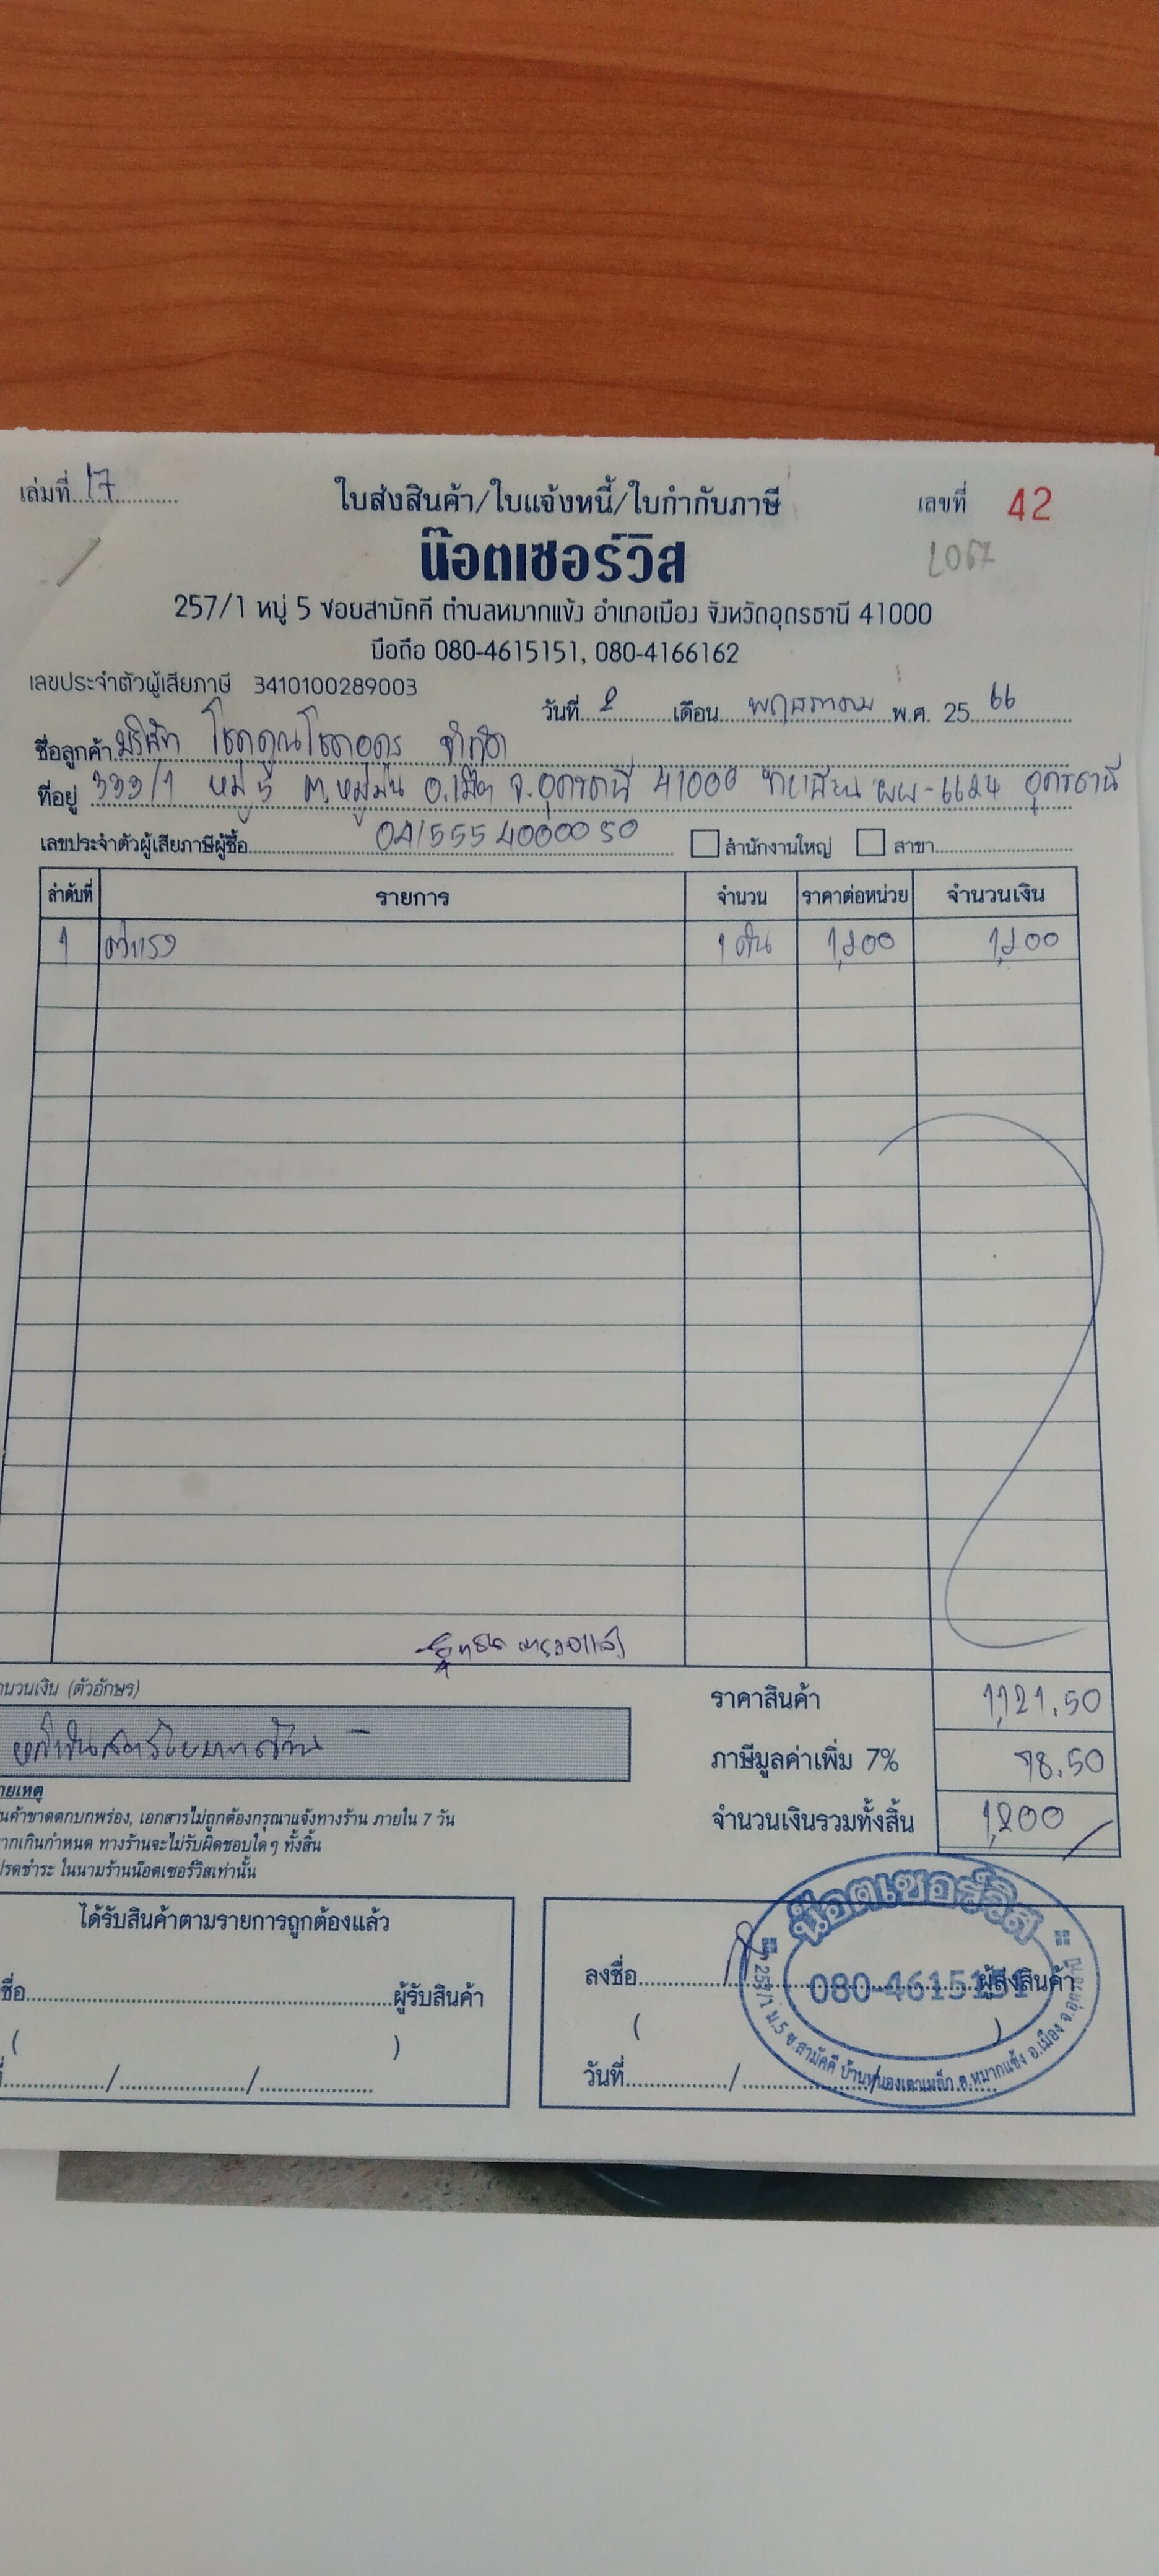 เล่มที่ 17 ใบส่งสินค้า/ใบแจ้งหนี้/ใบกำกับภาษี เลขที่ 42
น๊อตเซอร์วิส
257/1 หมู่ 5 ซอยสามัคคี ตำบลหมากแข้ง อำเภอเมือง จังหวัดอุดรธานี 41000
มือถือ 080-4615151, 080-4166162
เลขประจำตัวผู้เสียภาษี 3410100289003
วันที่ 2 เดือน พฤษภาคม พ.ศ. 2566
ชื่อลูกค้า บริษัท โชคคูณโชคอุดร จำกัด
ที่อยู่ 333/1 หมู่ 5 ต.หมูม่น อ.เมือง จ.อุดรธานี 41000 ทะเบียน ผผ-6624 อุดรธานี
เลขประจำตัวผู้เสียภาษีผู้ซื้อ 0415554000050 สำนักงานใหญ่ สาขา
ลำดับที่ รายการ จำนวน ราคาต่อหน่วย จำนวนเงิน
1 ค่าแรง 1 คัน 1,200 1,200
จำนวนเงิน (ตัวอักษร)
ราคาสินค้า 1,121.50
ภาษีมูลค่าเพิ่ม 7% 78.50
จำนวนเงินรวมทั้งสิ้น 1,200
หมายเหตุ
สินค้าขาดตกบกพร่อง, เอกสารไม่ถูกต้องกรุณาแจ้งทางร้าน ภายใน 7 วัน
หากเกินกำหนด ทางร้านจะไม่รับผิดชอบใดๆ ทั้งสิ้น
โปรดชำระ ในนามร้านน๊อตเซอร์วิสเท่านั้น
ได้รับสินค้าตามรายการถูกต้องแล้ว
ชื่อ ผู้รับสินค้า
( )
/ /
ลงชื่อ ผู้ส่งสินค้า
( )
วันที่ / /
น๊อตเซอร์วิส
080-4615151
257/1 ม.5 ซ.สามัคคี บ้านหนองเตาเหล็ก ต.หมากแข้ง อ.เมือง จ.อุดรธานี